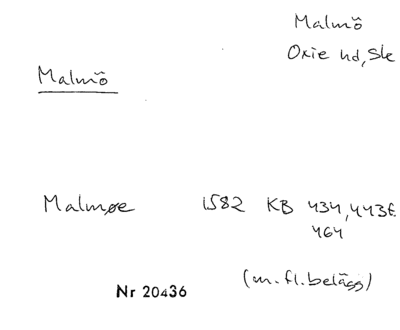 Malmö
Oxie hd, Sk
Malmö
Malmøe 1582 KB 434, 443f
464
(m. fl. belägg)
Nr 20436